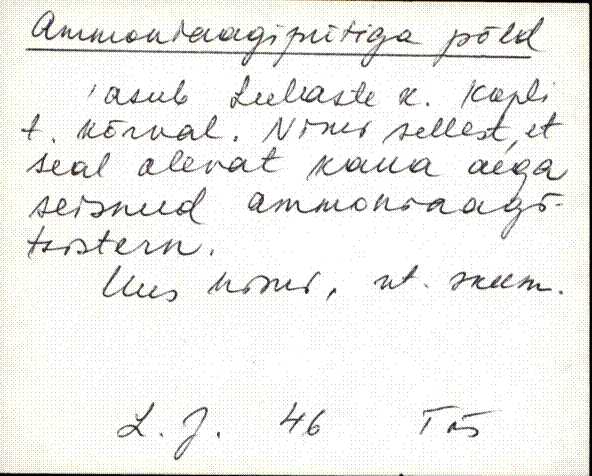 Ammoniaagipütiga põld
asub Luhaste k. Kopli
t. kõrval. Nimi sellest, et
seal olevat kaua aega
seisnud ammoniaagi-
tsistern.
Uus nimi, vt. skeem.
L. J. 46 Tõs